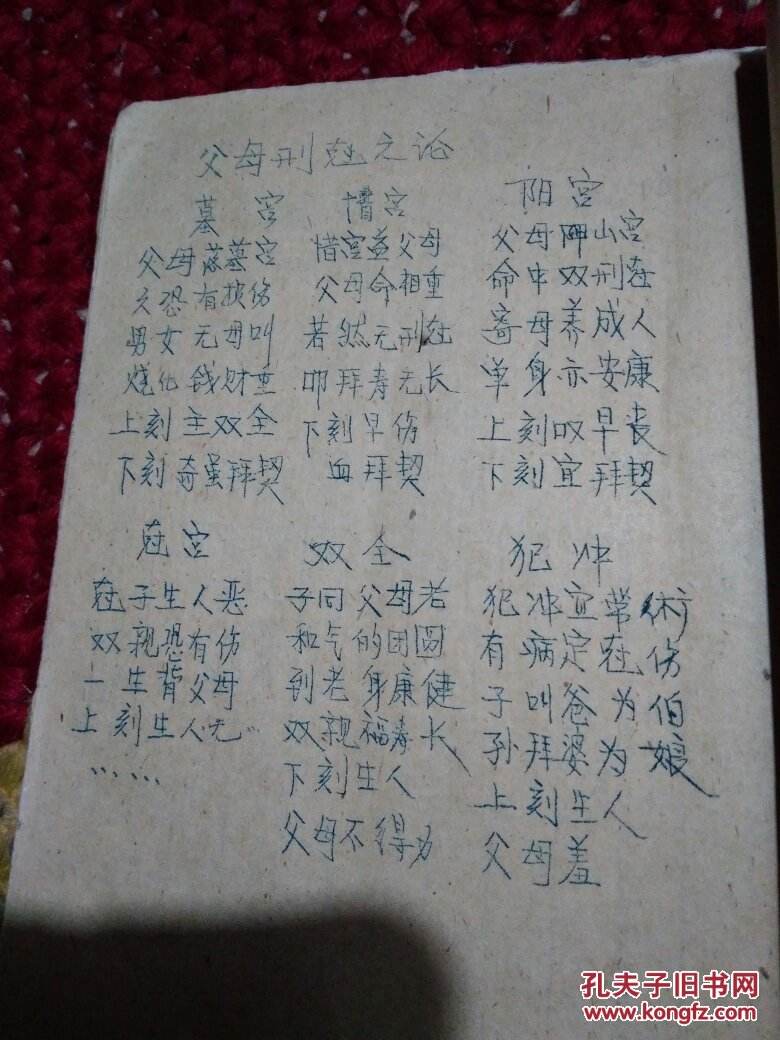 父母刑尅之论
墓宫
父母落墓宫
又恐有损伤
男女无母叫
烧化钱财重
上刻主双全
下刻奇虽拜契
惜宫
惜宫益父母
父母命相重
若然无刑尅
叩拜寿无长
下刻早伤
血拜契
阳宫
父母阳山宫
命中双刑尅
寄母养成人
单身亦安康
上刻叹早丧
下刻宜拜契
尅宫
尅子生人恶
双亲恐有伤
一生背父母
上刻生人无..
……
双全
子同父母若
和气的团圆
到老身康健
双亲福寿长
下刻生人
父母不得力
犯冲
犯冲宜带術
有病定尅伤
子叫爸为伯
孙拜婆为娘
上刻生人
父母羞
孔夫子旧书网
www.kongfz.com